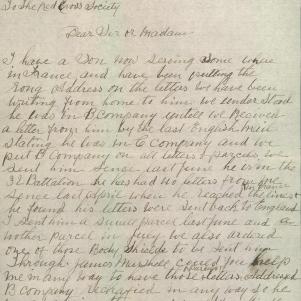 To The Red Cross Society
Dear Sir or Madam
I have a Son now Serving Some where
in France and have been putting the
rong address on the letters we have been
writing from home to him we under Stood
he was in B Company untell we Received
a letter from him by the last English Mail
Stating he was in C Company and we
put B Company on all letters & parcels we
Sent him Sense last June he is in the
32 Battalion he has had no letters from
Sence last April when he reached
he found his letters were Sent back to England
I Sent him a Small parcel last June and a
nother Parcel in July we also ordered
one of those Body Shields to be Sent him
Through James Marshell could you help
me in any way to have those letters addressed
B Company in any way So he